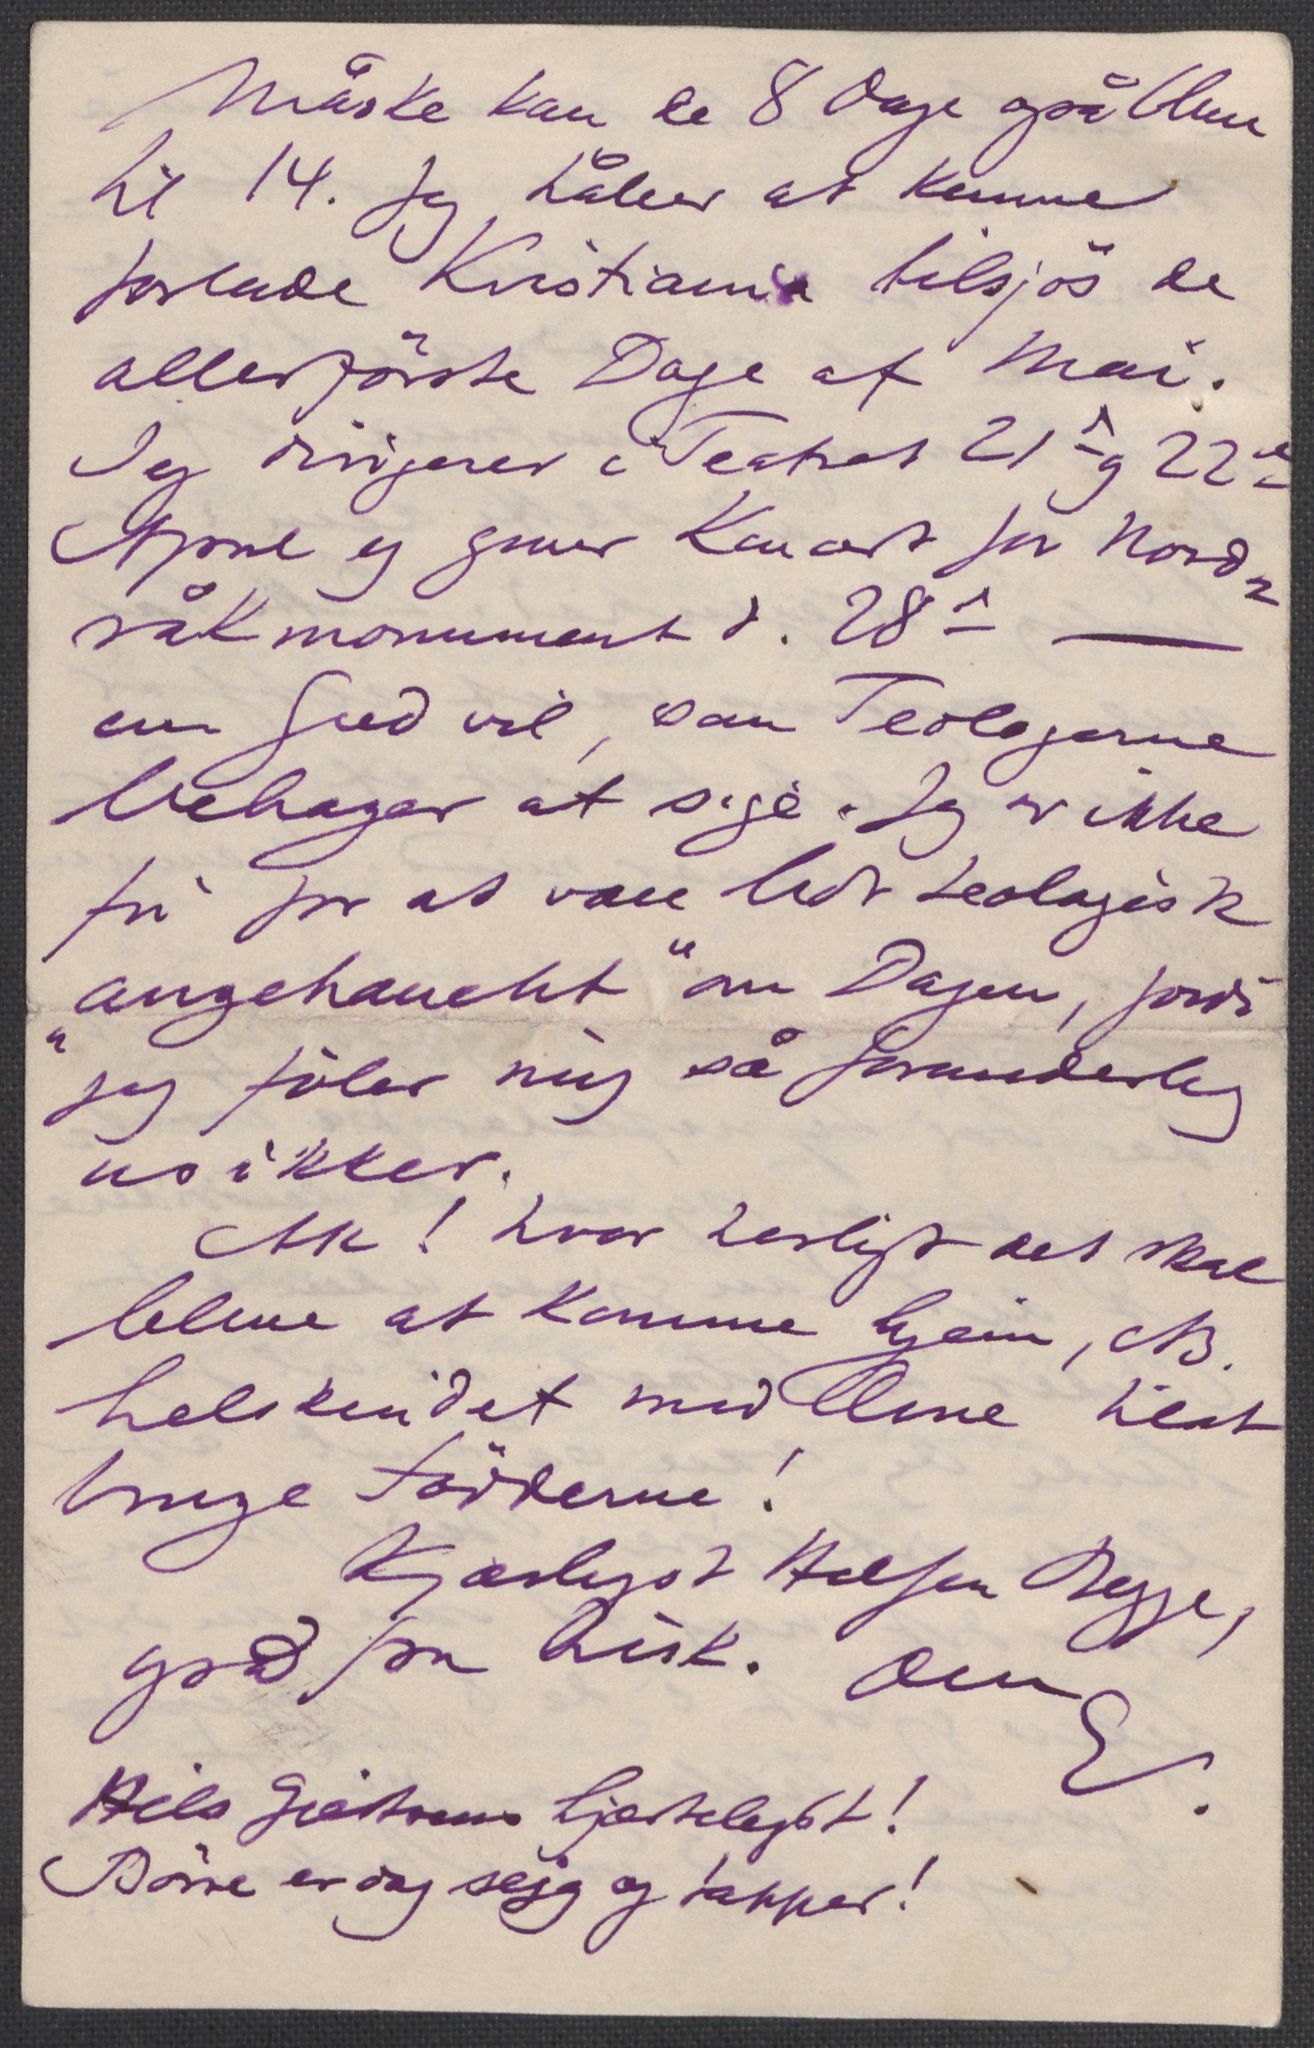 Måske kan de 8 Dage også blive
til 14. Jeg håber at kunne
forlade Kristiania tilsjøs de
allerförste Dage af Mai.
Jeg dirigerer i Teatret 21de og 22de
April og giver Koncert for Nord=
råkmonumentet d. 28de —
om Gud vil, som Teologerne
behager at sige. Jeg er ikke
fri for at være lidt teologisk
"angehaucht" om Dagen, fordi
jeg föler mig så forunderlig
usikker.
Ak! hvor herligt det skal
blive at komme hjem, NB.
helskindet med Evne til at
bruge Födderne!
Kjærligst Hilsen Begge,
også fra Lisk. Din
E.
Hils hjærteligst!
Börre er dog sejg og tapper!